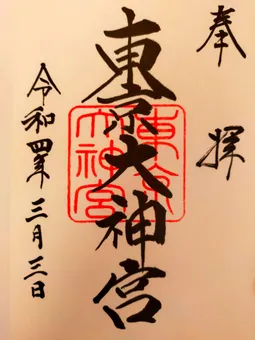 奉拝
東京大神宮
東京大神宮
令和四年三月三日